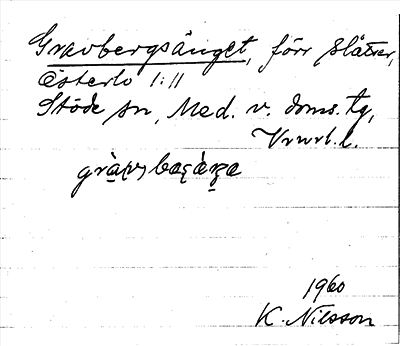 Gravbergsänget, förr slåtter,
Österlo 1:11
Stöde sn, Med. v. doms. tg,
1960
K. Nilsson